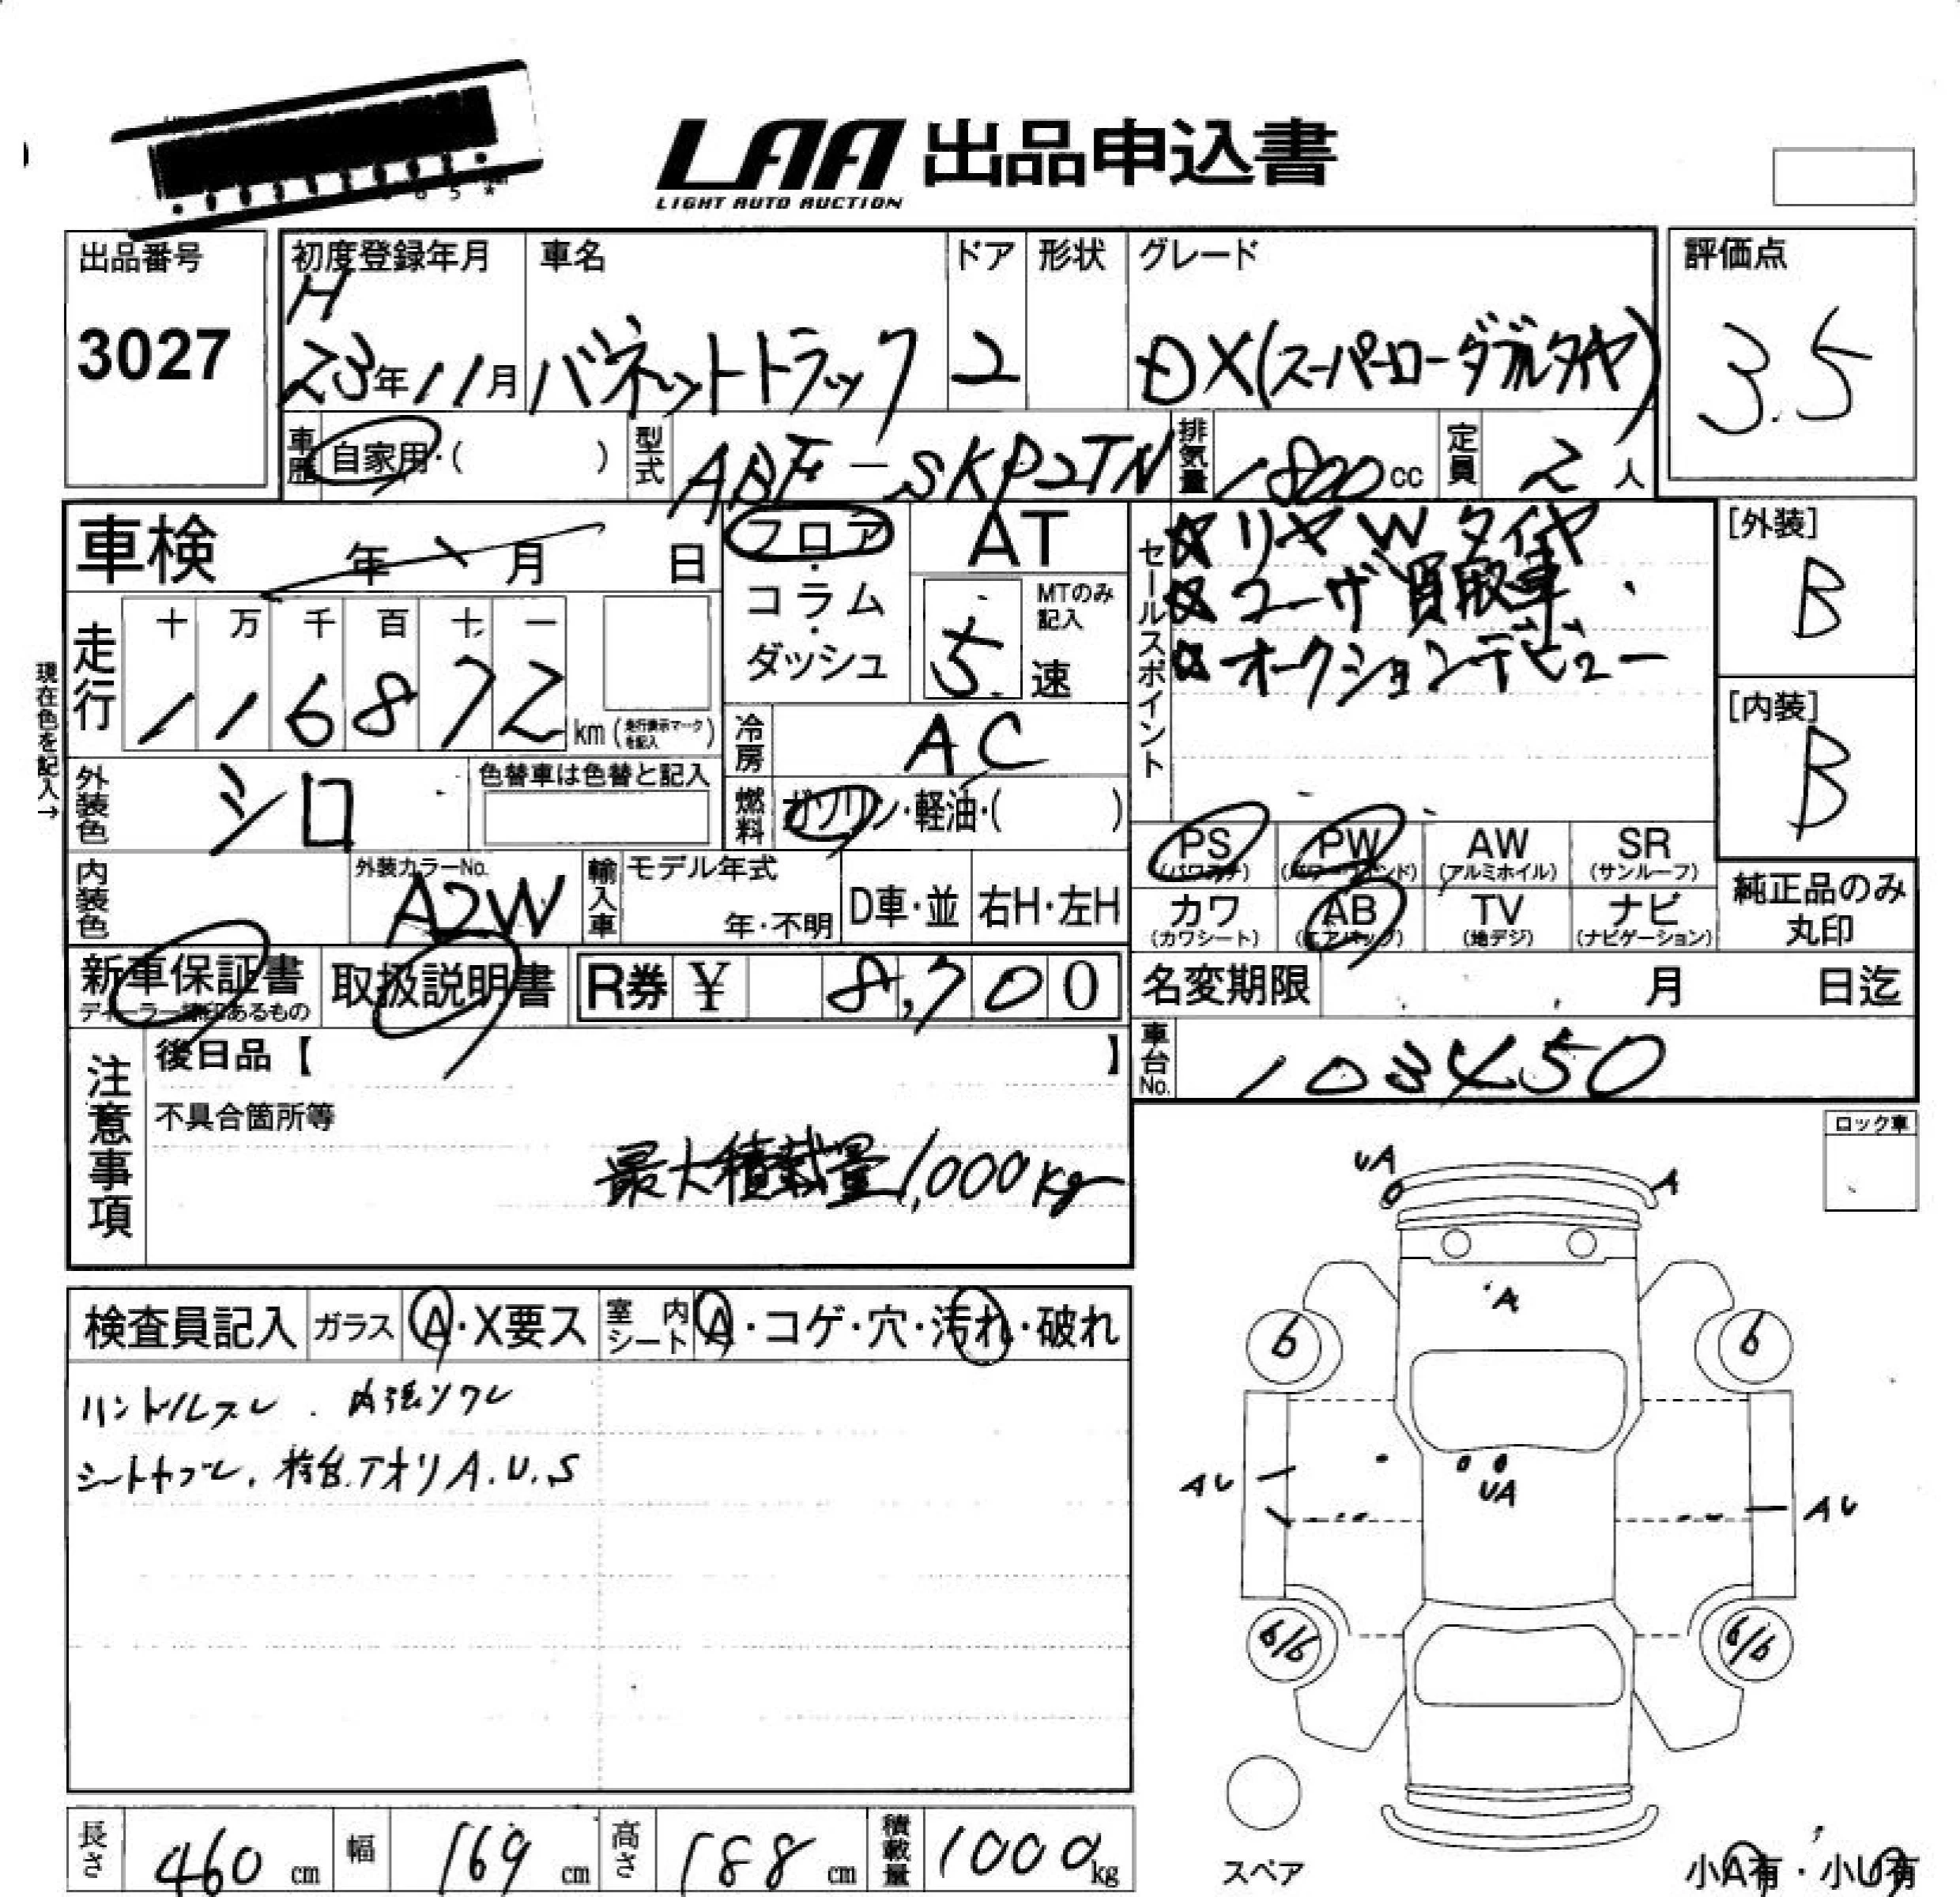 LAA 出品申込書
LIGHT AUTO AUCTION
出品番号
3027
初度登録年月
H
23年11月
車名
バネットトラック
ドア
2
形状
グレード
DX(スーパーローダブルタイヤ)
評価点
3.5
車歴
自家用・( )
型式
ABF-SKP2TN
排気量
1800cc
定員
2人
車検
年 月 日
フロア・コラム・ダッシュ
AT
MTのみ記入
5速
セールスポイント
☆リヤWタイヤ
☆ユーザ買取車
☆オークションデビュー
[外装]
B
[内装]
B
現在色を記入→
走行
十 万 千 百 十 一
1 1 6 8 7 2
km(走行表示マークを記入)
冷房
AC
燃料
ガソリン・軽油・( )
外装色
シロ
色替車は色替と記入
内装色
外装カラーNo.
A2W
輸入車
モデル年式
年・不明
D車・並
右H・左H
PS
(パワステ)
PW
(パワーウインド)
AW
(アルミホイル)
SR
(サンルーフ)
カワ
(カワシート)
AB
(エアバッグ)
TV
(地デジ)
ナビ
(ナビゲーション)
純正品のみ
丸印
新車保証書
取扱説明書
R券 ¥ 8,700
名変期限 月 日迄
車台No.
103450
注意事項
後日品【 】
不具合箇所等
最大積載量1,000kg
ロック車
検査員記入
ガラス
A・X要ス
室内シート
A・コゲ・穴・汚れ・破れ
ハンドルスレ. 内張ソワレ
シートヤブレ. 荷台.アオリA.U.S
UA
A
A
6
6
AU
UA
AU
6/6
6/6
スペア
小A有・小U有
長さ
460cm
幅
169cm
高さ
188cm
積載量
1000kg